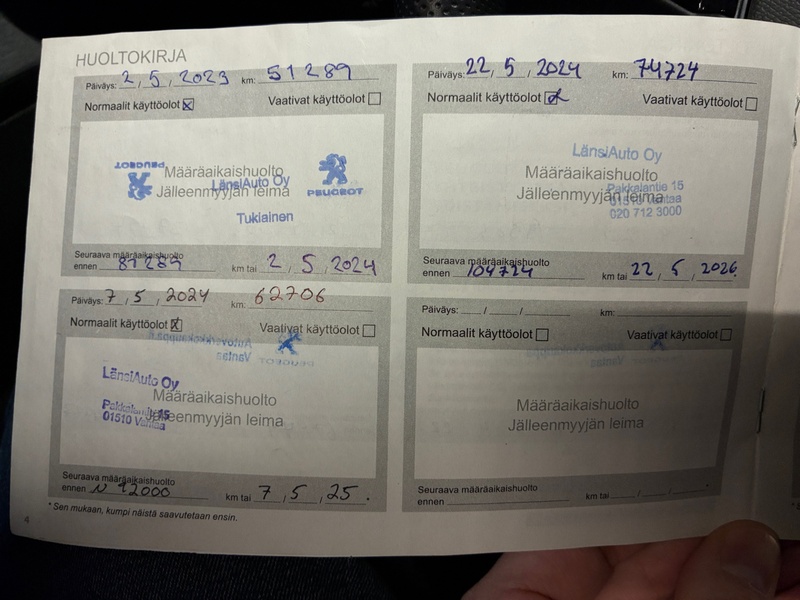 HUOLTOKIRJA
Päiväys: 2, 5, 2023 km: 51289
Normaalit käyttöolot Vaativat käyttöolot
PEUGEOT
Määräaikaishuolto
LänsiAuto Oy
Jälleenmyyjän leima
PEUGEOT
Tuklainen
Seuraava määräaikaishuolto
ennen 81289 km tai 2, 5, 2024
Päiväys: 7, 5, 2024 km: 62706
Normaalit käyttöolot Vaativat käyttöolot
Vantaa
PEUGEOT
LänsiAuto Oy
Määräaikaishuolto
Pakkalantie 15
Jälleenmyyjän leima
01510 Vantaa
Seuraava määräaikaishuolto
ennen N 92000 km tai 7, 5, 25.
* Sen mukaan, kumpi näistä saavutetaan ensin.
4
Päiväys: 22, 5, 2024 km: 74724
Normaalit käyttöolot Vaativat käyttöolot
LänsiAuto Oy
Määräaikaishuolto
Pakkalantie 15
Jälleenmyyjän leima
01510 Vantaa
020 712 3000
Seuraava määräaikaishuolto
ennen 104724 km tai 22, 5, 2026.
Päiväys: __/__/__ km:
Normaalit käyttöolot Vaativat käyttöolot
Määräaikaishuolto
Jälleenmyyjän leima
Seuraava määräaikaishuolto
ennen km tai __/__/__